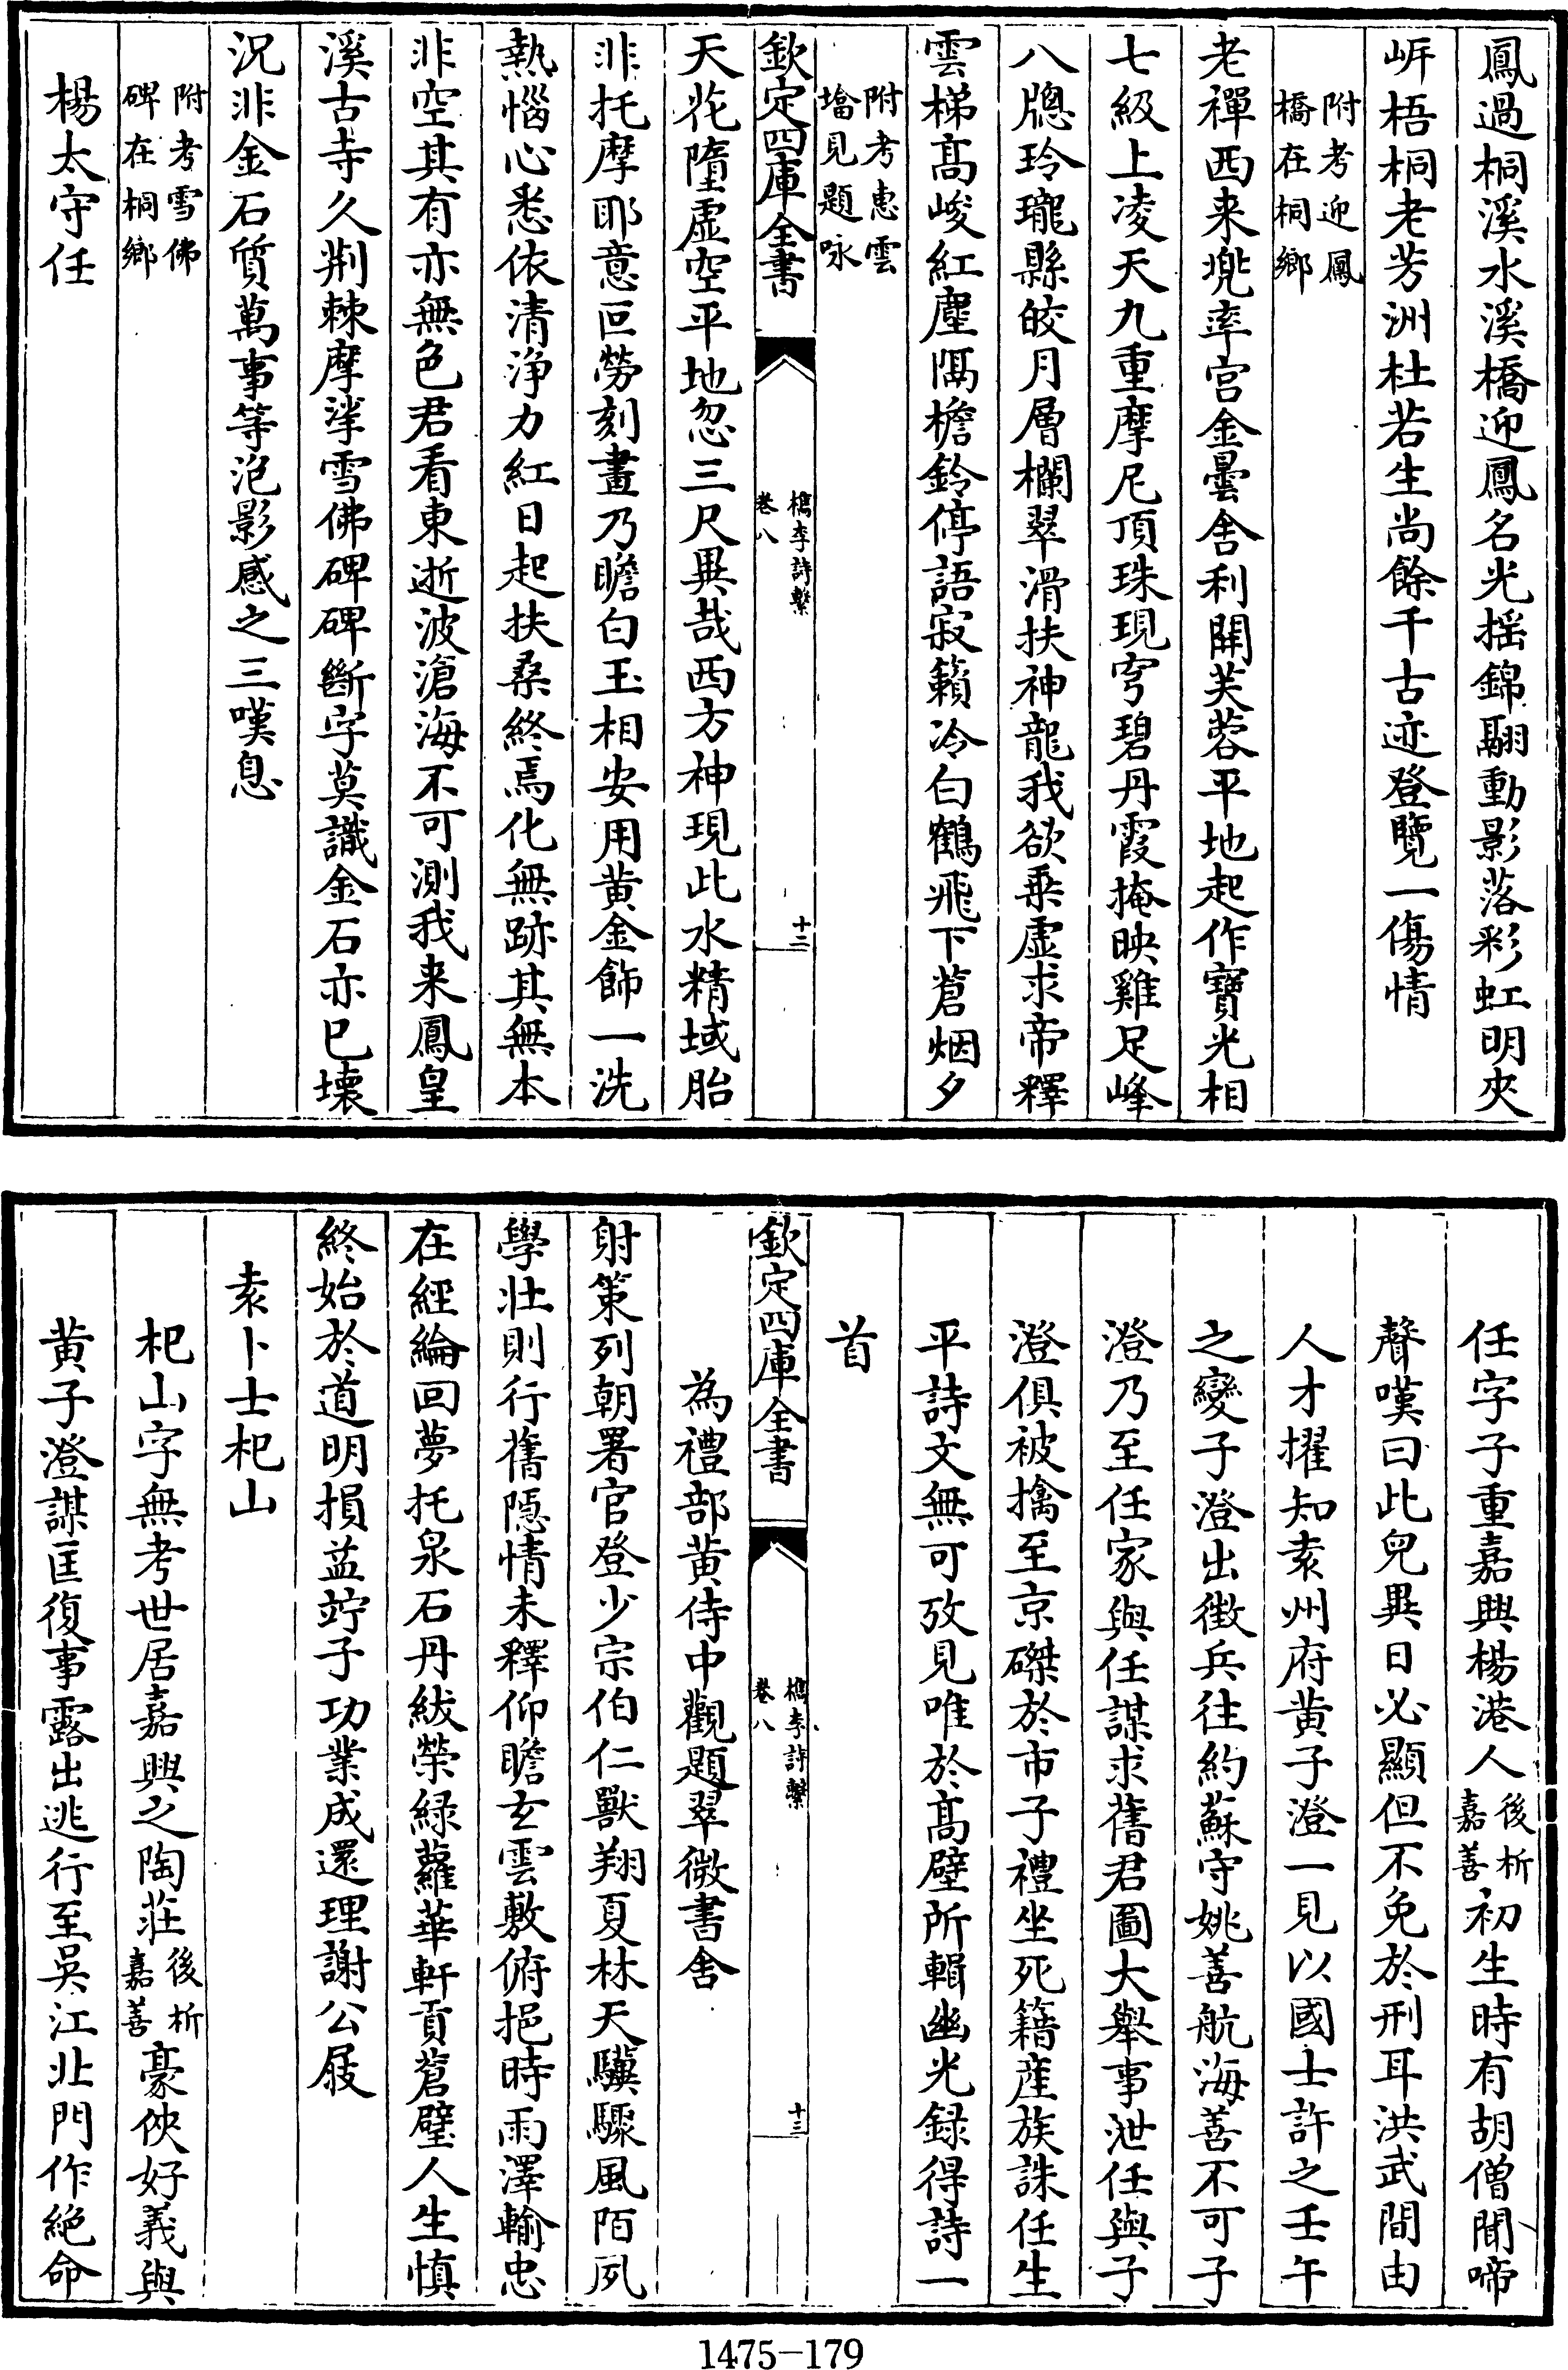 鳳過桐溪水溪橋迎鳳名光揺錦翮動影落彩虹明夾
㟁梧桐老芳洲杜若生尚餘千古迹登覽一傷情
附考迎鳳
橋在桐鄉
老禪西来兠率宫金曇舍利開芙蓉平地起作寶光相
七級上凌天九重摩尼頂珠現穹碧丹霞掩映雞足峰
八牕玲瓏縣皎月層欄翠滑扶神龍我欲乗虚求帝釋
雲梯髙峻紅塵隔檐鈴停語寂籟冷白鶴飛下蒼烟夕
附考惠雲
墖見題咏
欽定四庫全書
檇李詩繫
卷八
十二
天花墮虚空平地忽三尺異哉西方神現此水精域胎
非托摩耶意叵勞刻畫乃瞻白玉相安用黄金飾一洗
熱惱心悉依清浄力紅日起扶桑終焉化無跡其無本
非空其有亦無色君看東逝波滄海不可測我来鳳皇
溪古寺久荆棘摩挲雪佛碑碑斷字莫識金石亦已壊
況非金石質萬事等泡影感之三嘆息
附考雪佛
碑在桐鄉
楊太守任
任字子重嘉興楊港人
後析
嘉善
初生時有胡僧聞啼
聲嘆曰此兒異日必顯但不免於刑耳洪武間由
人才擢知袁州府黄子澄一見以國士許之壬午
之變子澄出徴兵往約蘇守姚善航海善不可子
澄乃至任家與任謀求舊君圖大舉事泄任與子
澄俱被擒至京磔於市子禮坐死籍産族誅任生
平詩文無可攷見唯於髙壁所輯幽光録得詩一
首
欽定四庫全書
檇李詩繫
卷八
十三
為禮部黄侍中觀題翠微書舍
射策列朝署官登少宗伯仁獸翔夏林天驥驟風陌夙
學壯則行舊隠情未釋仰瞻玄雲敷俯挹時雨澤輸忠
在經綸回夢托泉石丹紱榮緑蘿華軒賁蒼壁人生慎
終始於道明損益竚子功業成還理謝公屐
袁卜士杞山
杞山字無考世居嘉興之陶莊
後析
嘉善
豪俠好義與
黄子澄謀匡復事露出逃行至吳江北門作絶命
1475-179